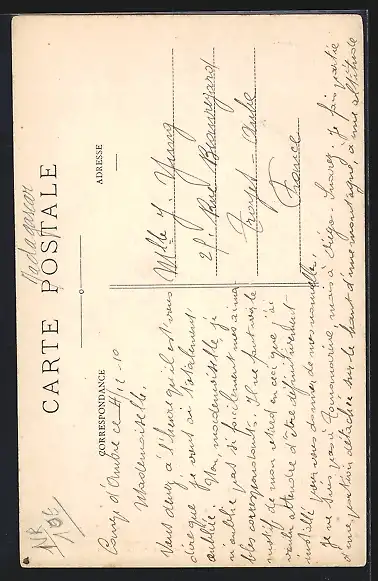 Madagascar
CARTE POSTALE
CORRESPONDANCE
ADRESSE
Camp d'Ambre ce 4/12-10
Mademoiselle.
Vous devez à l'heure qu'il est vous
dire que je vous ai totalement
oubliée. Non, mademoiselle je
n'oublie pas si facilement mes aima-
bles correspondants. Il ne faut voir le
motif de mon retard en ceci que j'ai
voulu attendre d'être définitivement
installé pour vous donner de mes nouvelles.
Je ne suis pas à Tamanarive, mais à Diégo-Suarez, je fais partie
d'une portion détachée sur le haut d'une montagne, à une altitude
Mlle J. Yung
25 Rue Beauregard
Troyes - Aube
France
NR